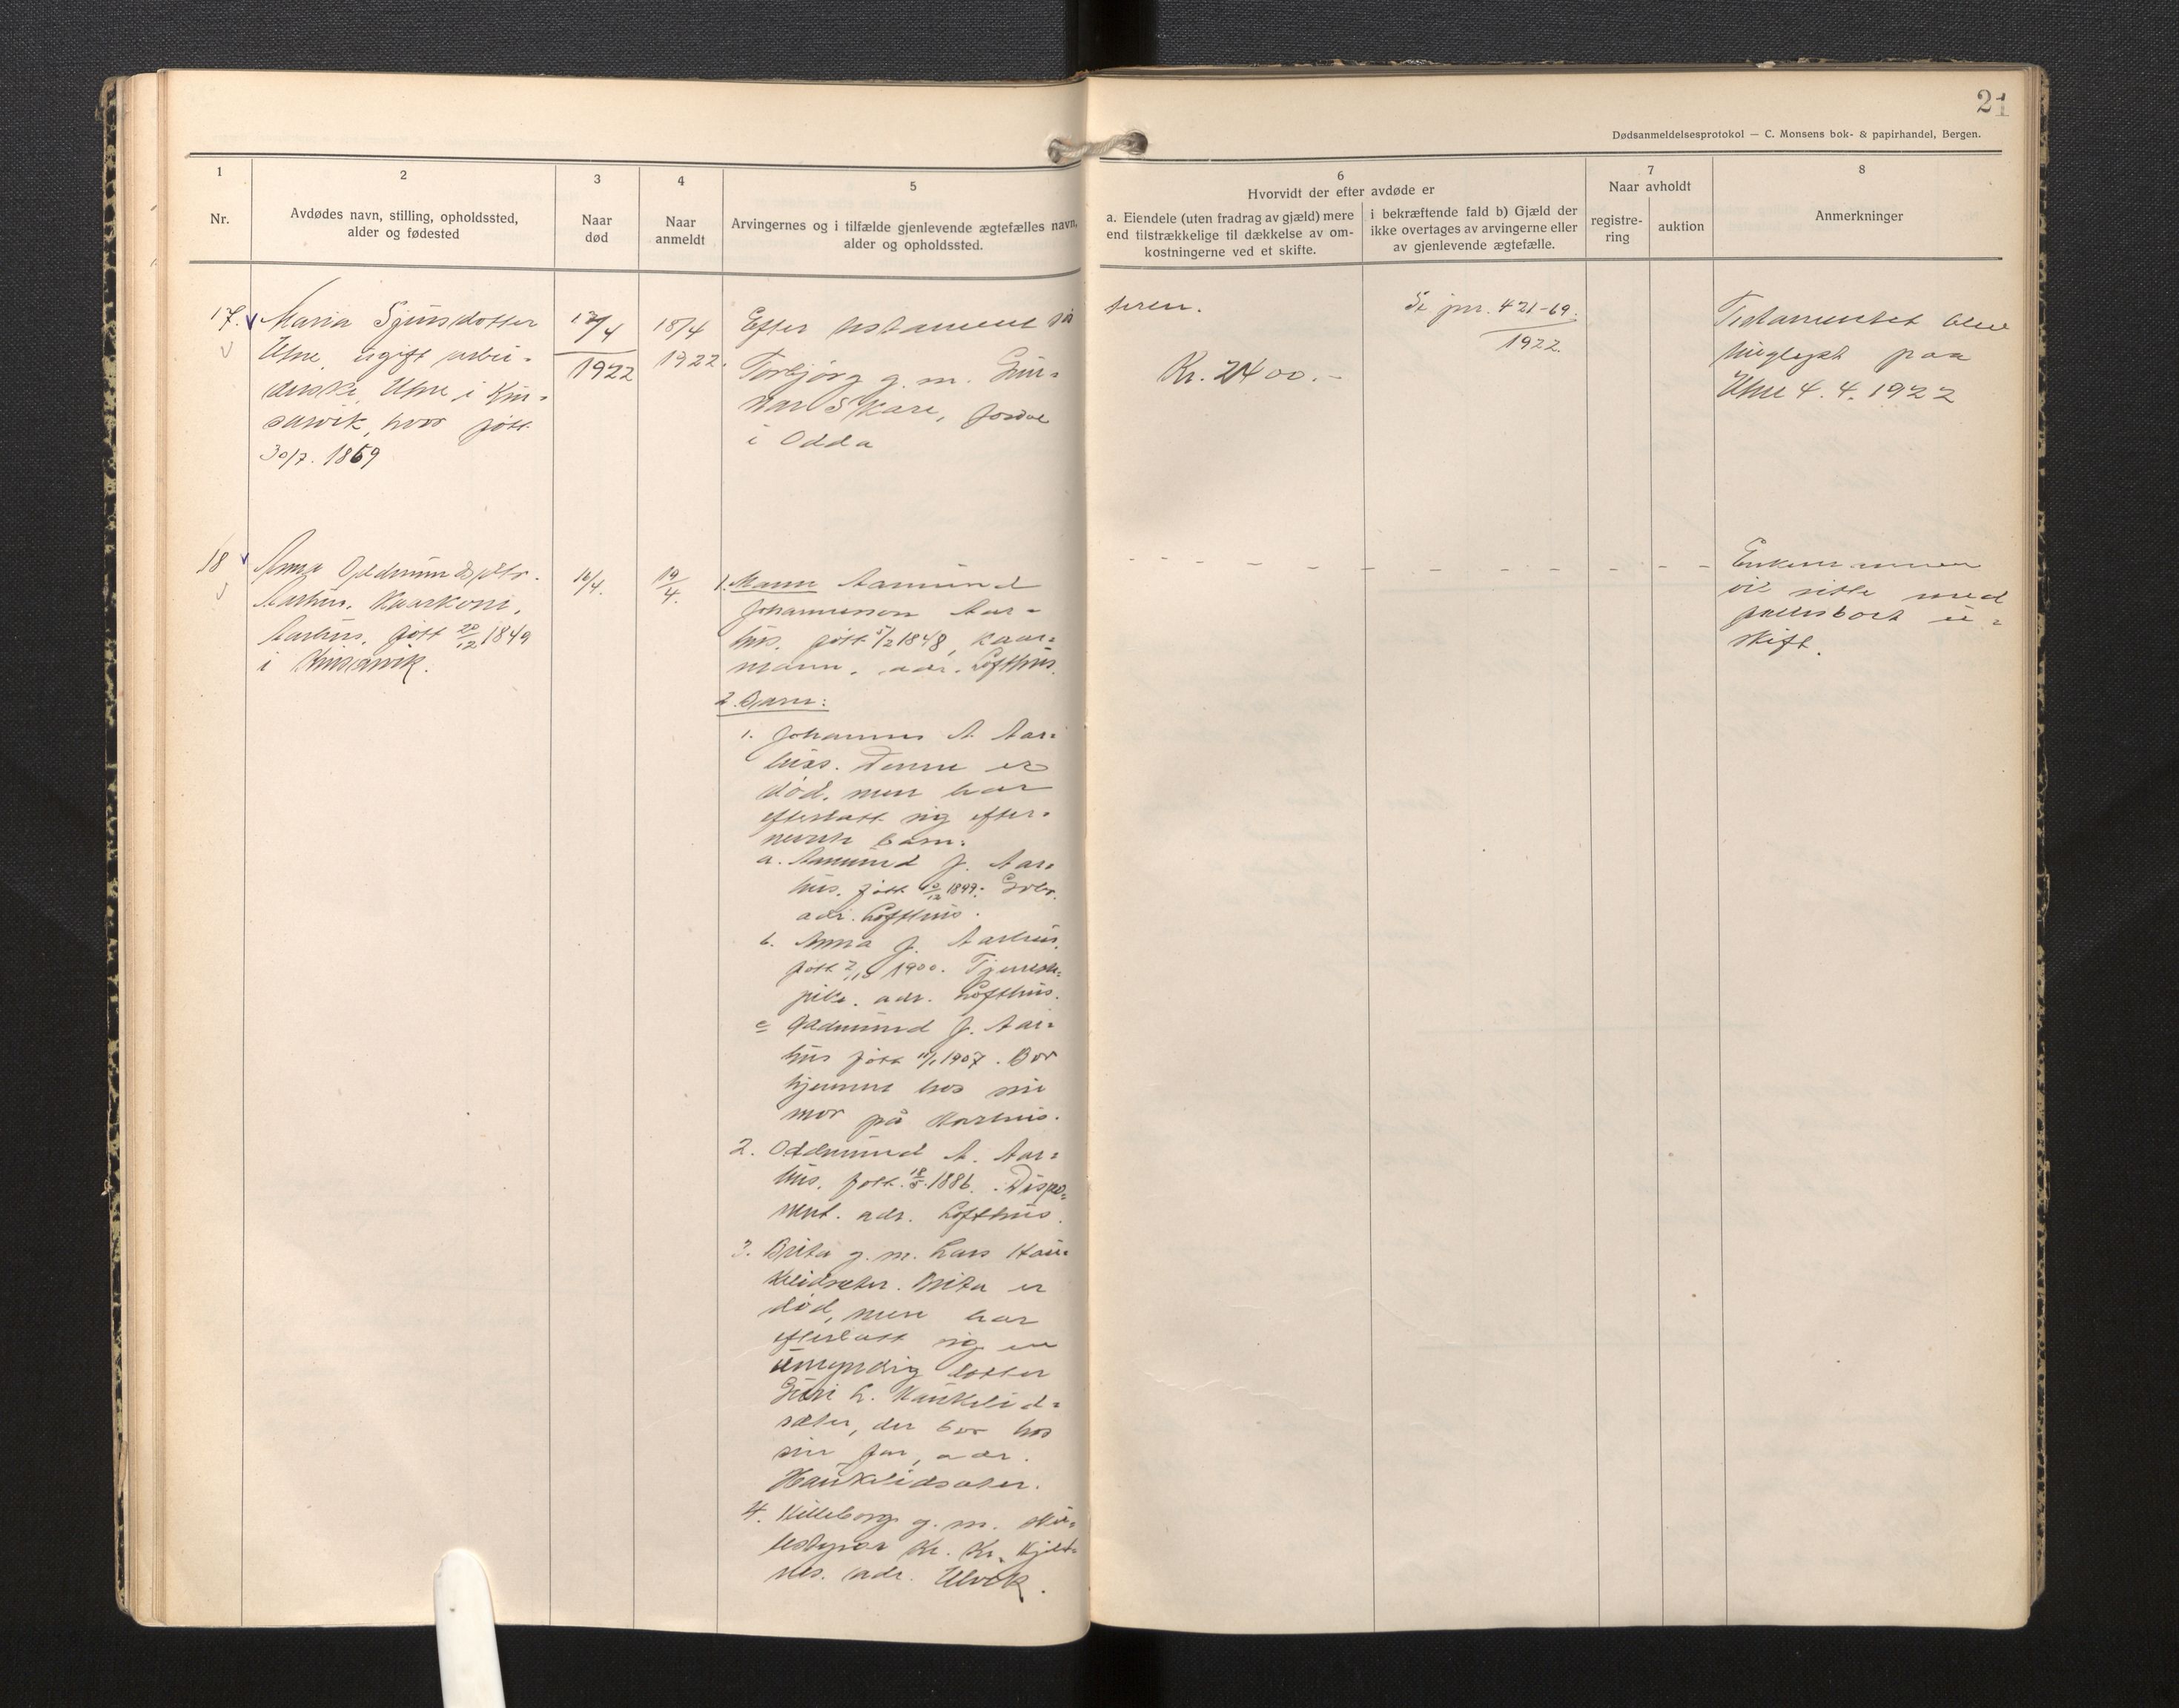 21
Dødsanmeldelsesprotokol — C. Monsens bok- & papirhandel, Bergen.
1
Nr.
2
Avdødes navn, stilling, opholdssted,
alder og fødested
3
Naar
død
4
Naar
anmeldt
5
Arvingernes og i tilfælde gjenlevende ægtefælles navn,
alder og opholdssted.
6
Hvorvidt der efter avdøde er
a. Eiendele (uten fradrag av gjæld) mere
end tilstrækkelige til dækkelse av om-
kostningerne ved et skifte.
i bekræftende fald b) Gjæld der
ikke overtages av arvingerne eller
av gjenlevende ægtefælle.
7
Naar avholdt
registre-
ring
auktion
8
Anmerkninger
17.
Maria Sjursdotter
Utne, ugift arbei-
derske, Utne i Kin-
sarvik, hvor født
30/7. 1869
/4
1922
18/4
1922.
Efter testament
Torbjørg g. m. Gun-
nar Skare, Jordal
i Odda
Kr. 2400.-
Se jnr. 421-69.
1922.
Testamentet blev
tinglyst paa
Utne 4. 4. 1922
18
Anna Oddmundsdtr.
Aarhus. Kaarkone,
Aarhus, født 20/12 1849
i Kinsarvik.
16/4.
19/4.
1. Mann Aamund
Johannesson Aar-
hus, født 5/2 1848, kaar-
mann. adr. Lofthus.
2. Barn:
1. Johannes A. Aar-
hus. Denne er
død, men har
efterlatt sig efter-
nevnte barn:
a. Aamund J. Aar-
hus. født /12 1899. Gbr.
adr. Lofthus.
b. Anna J. Aarhus.
født 2/10 1900. Tjeneste-
pike. adr. Lofthus.
c Oddmund J. Aar-
hus født 11/1 1907. Bor
hjemme hos sin
mor på Aarhus.
2. Oddmund A. Aar-
hus. født. 18/5. 1886. Dispo-
nent. adr. Lofthus.
3. Brita g. m. Lars Hau-
kelidseter. Brita er
død, men har
efterlatt sig en
umyndig dotter
Guri L. Haukelid-
sæter, der bor hos
sin far, adr.
Haukelidsæter.
4. g. m. Sku-
lestyrer Kr. Kr. Kjelt-
nes. adr. Ulvik.
Enkemannen
vil sitte med
fællesboet u-
skift.